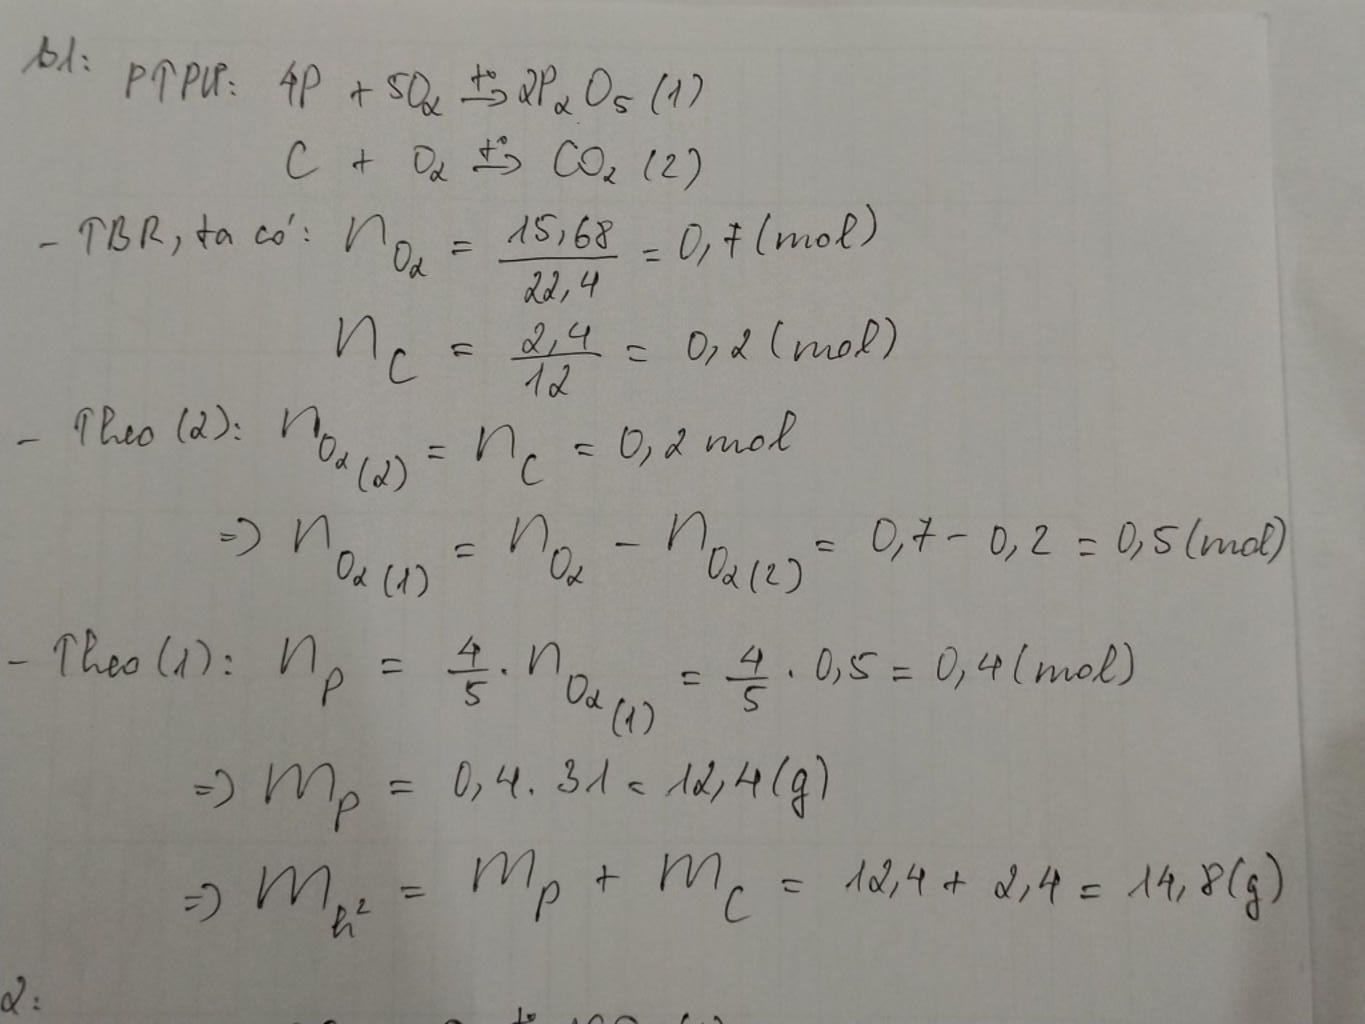 B1: PTPƯ: 4P + 5O₂ →(t°) 2P₂O₅ (1)
C + O₂ →(t°) CO₂ (2)
- TBR, ta có: n_O₂ = 15,68/22,4 = 0,7 (mol)
n_C = 2,4/12 = 0,2 (mol)
- Theo (2): n_O₂(2) = n_C = 0,2 mol
=> n_O₂(1) = n_O₂ - n_O₂(2) = 0,7 - 0,2 = 0,5 (mol)
- Theo (1): n_P = 4/5 . n_O₂(1) = 4/5 . 0,5 = 0,4 (mol)
=> m_P = 0,4 . 31 = 12,4 (g)
=> m_h² = m_P + m_C = 12,4 + 2,4 = 14,8 (g)
2: